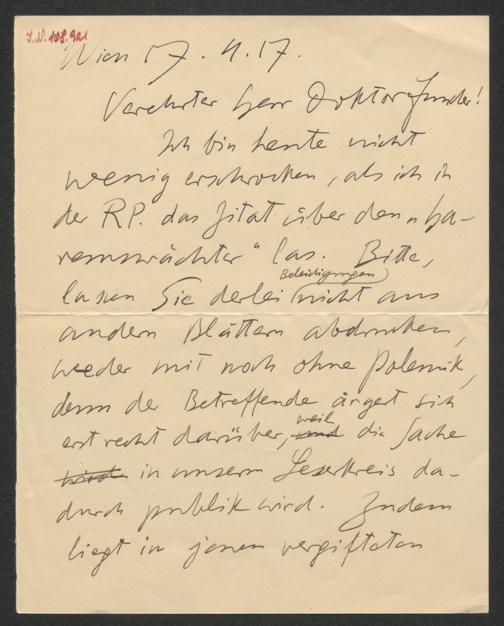 I.N. 108.921
Wien 17. 4. 17.
Verehrter Herr Doktor Funder!
Ich bin heute nicht
wenig erschrocken, als ich in
der RP. das Zitat über den „Ha-
remswächter" las. Bitte,
Beleidigungen
lassen Sie derlei nicht aus
andern Blättern abdrucken,
weder mit noch ohne Polemik,
denn der Betreffende ärgert sich
weil
erst recht darüber, und die Sache
wird in unserm Leserkreis da-
durch publik wird. Zudem
liegt in jenen vergifteten